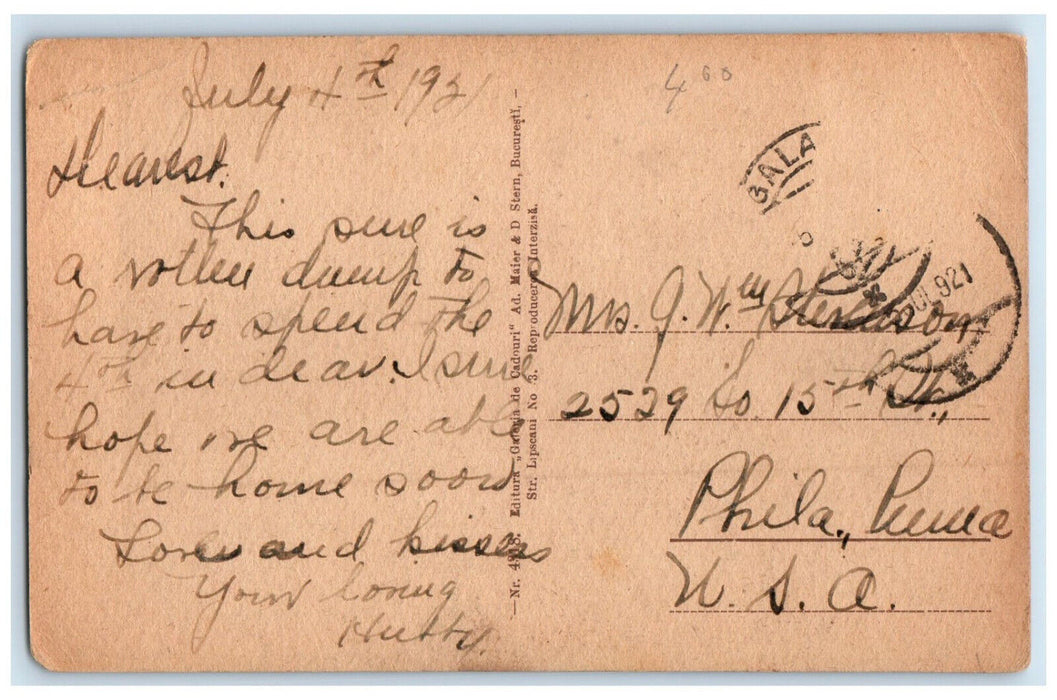 July 4th 1921
Dearest.
This sure is
a rotten dump to
have to spend the
4th in dear. I sure
hope we are able
to be home soon
Loves and kisses
Your loving
Hubby.
—Nr. Editura „Galeria de Cadouri" Ad. Maier & D Stern, Bucureşti, –
Str. Lipscani No 3. Reproducerea Interzisă.
4 60
GALA
921
Mrs. J. Wm
2529 So. 15th St.,
Phila., Penna
U. S. A.